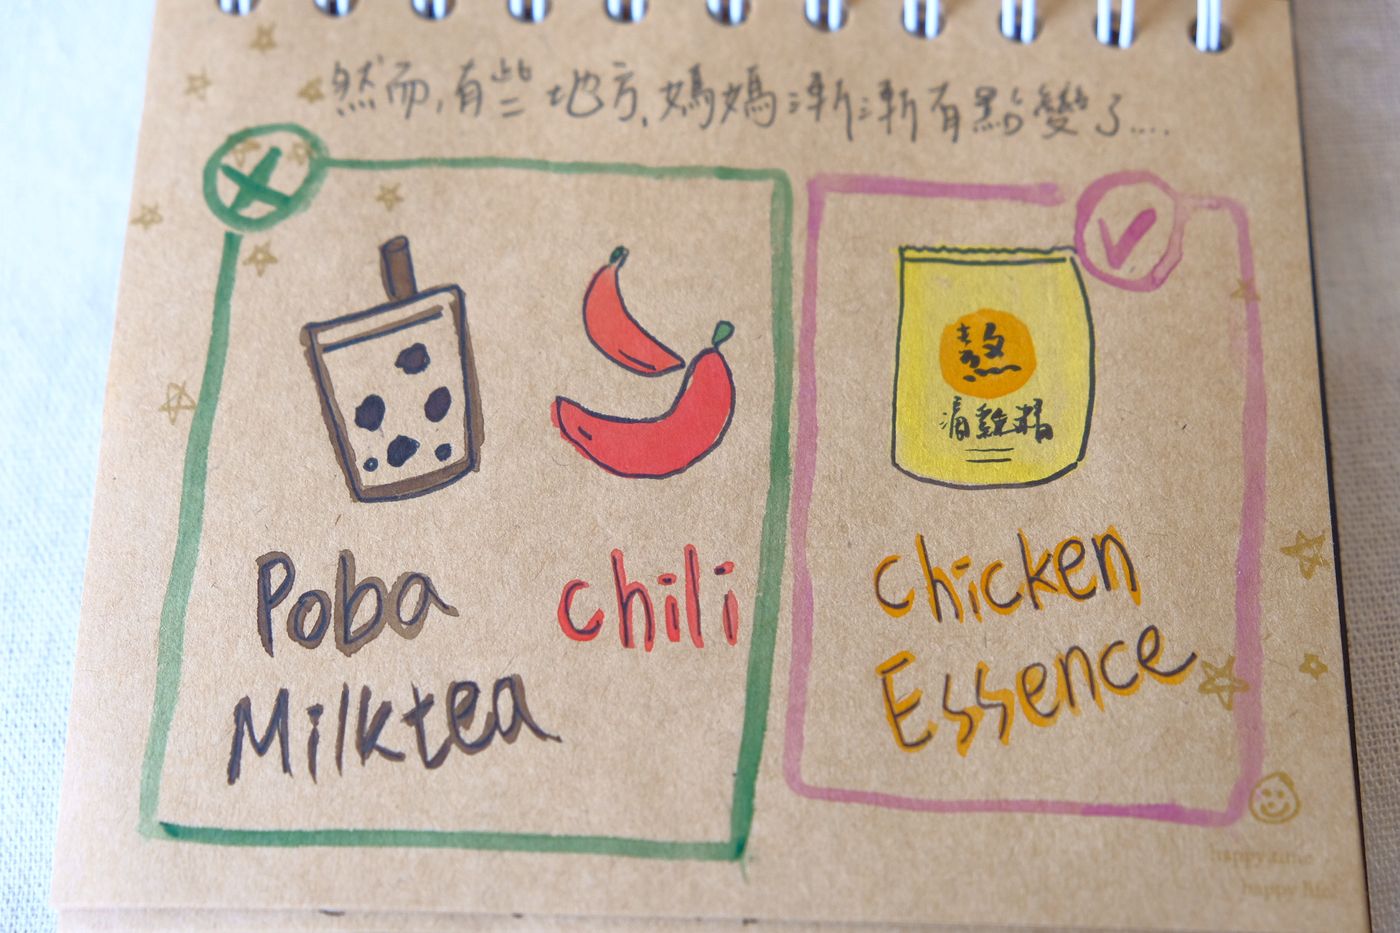 然而,有些地方,媽媽漸漸有點變了....
熬
滴雞精
Poba
Milktea
chili
chicken
Essence
happy time
happy life!